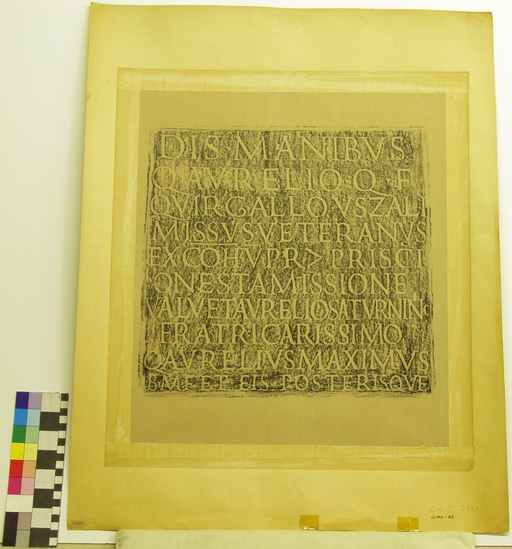 DIS MANIBVS
Q AVRELIO Q F
QVIR GALLO VSZALI
MISSVS VETERANVS
EX COH V PR > PRISCI
ONESTA MISSIONE
VAL VET AVRELIO SATVRNINO
FRATRI CARISSIMO
Q AVRELIVS MAXIMVS
B M F ET EIS POSTERISQVE